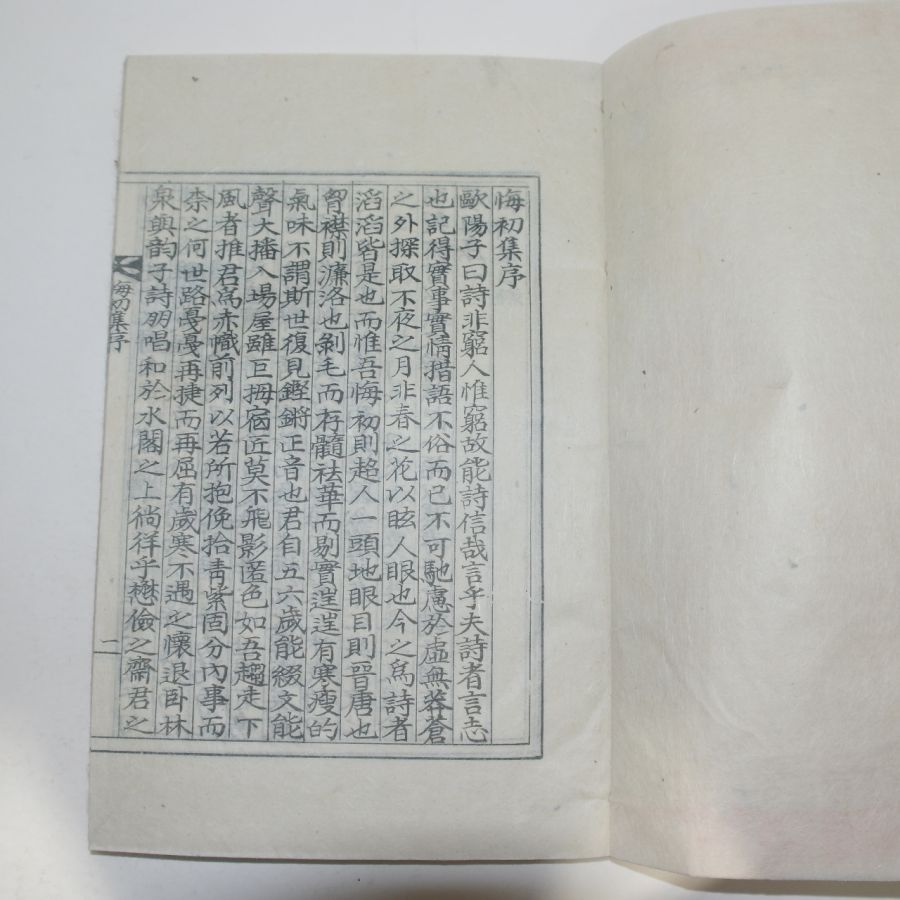 悔初集序
歐陽子曰詩非窮人惟窮故能詩信哉言乎夫詩者言志
也記得實事實情措語不俗而已不可馳慮於虛無莽蒼
之外探取不夜之月非春之花以眩人眼也今之爲詩者
滔滔皆是也而惟吾悔初則超人一頭地眼目則晉唐也
胷襟則濂洛也剝毛而存髓祛華而剔實逞逞有寒瘦的
氣味不謂斯世復見鏗鏘正音也君自五六歲能綴文能
聲大播入場屋雖巨拇宿匠莫不飛影匿色如吾趨走下
風者推君爲赤幟前列以若所抱俛拾靑紫固分內事而
柰之何世路戞戞再捷而再屈有歲寒不遇之懷退卧林
泉與韵子詩朋唱和於水閣之上徜徉乎懋儉之齋君之
悔初集序
二